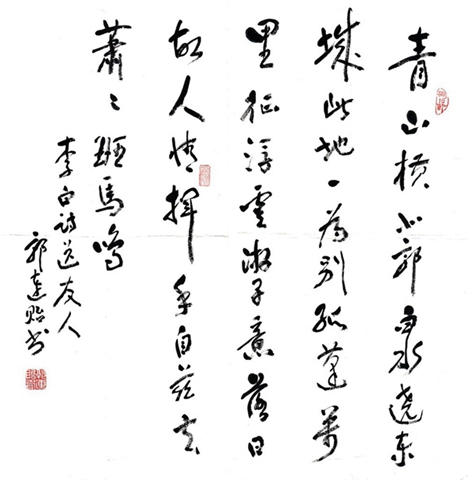 青山横北郭白水绕东
城此地一为别孤蓬万
里征浮云游子意落日
故人情挥手自兹去
萧〻班马鸣
李白诗送友人
郭书